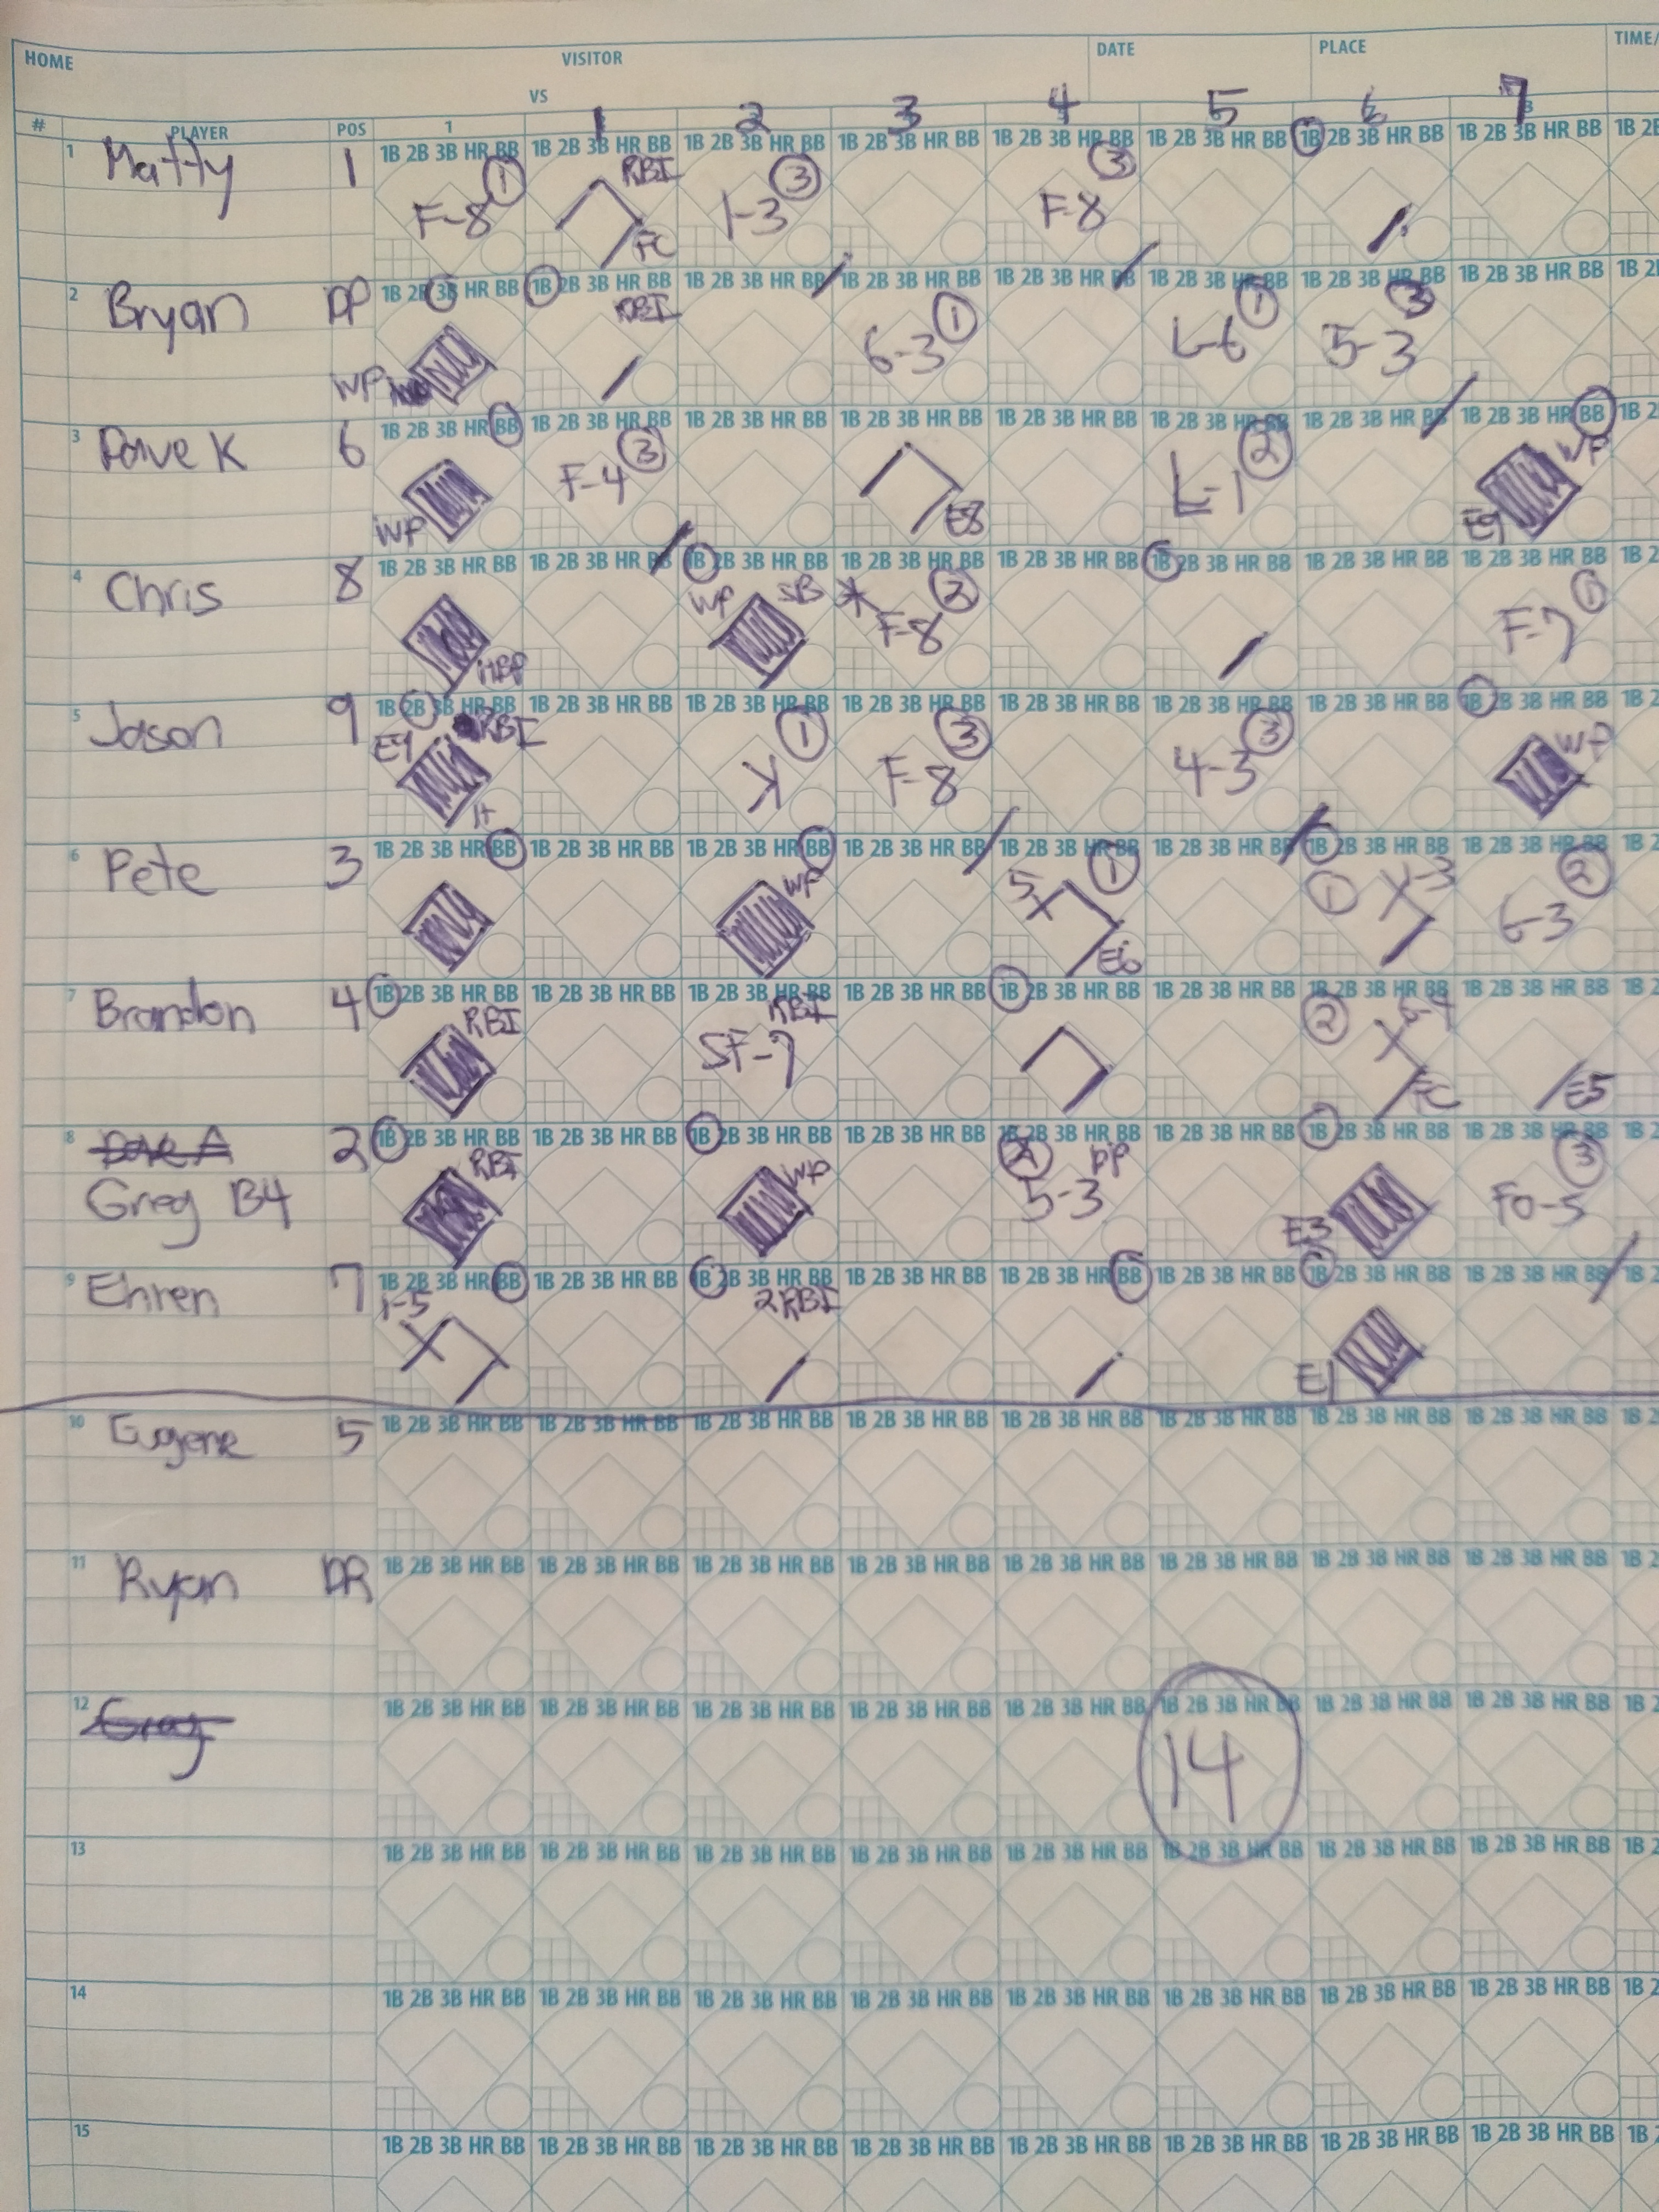 HOME VISITOR DATE PLACE TIME/
VS
1 2 3 4 5 6 7
# PLAYER POS 1 3
1 Matty 1 1B 2B 3B HR BB 1B 2B 3B HR BB 1B 2B 3B HR BB 1B 2B 3B HR BB 1B 2B 3B HR BB 1B 2B 3B HR BB 1B 2B 3B HR BB 1B 2B 3B HR BB 1B 2B
F-8 1 RBI FC 1-3 3 F-8 3
2 Bryan DP 1B 2B 3B HR BB 1B 2B 3B HR BB 1B 2B 3B HR BB 1B 2B 3B HR BB 1B 2B 3B HR BB 1B 2B 3B HR BB 1B 2B 3B HR BB 1B 2B 3B HR BB 1B 2B
WP RBI 6-3 1 L-6 1 5-3 3
3 Dave K 6 1B 2B 3B HR BB 1B 2B 3B HR BB 1B 2B 3B HR BB 1B 2B 3B HR BB 1B 2B 3B HR BB 1B 2B 3B HR BB 1B 2B 3B HR BB 1B 2B 3B HR BB 1B 2
WP F-4 3 E8 L-1 2 WP E9
4 Chris 8 1B 2B 3B HR BB 1B 2B 3B HR BB 1B 2B 3B HR BB 1B 2B 3B HR BB 1B 2B 3B HR BB 1B 2B 3B HR BB 1B 2B 3B HR BB 1B 2B 3B HR BB 1B 2
HBP WP SB * F-8 2 F-7 1
5 Jason 9 1B 2B 3B HR BB 1B 2B 3B HR BB 1B 2B 3B HR BB 1B 2B 3B HR BB 1B 2B 3B HR BB 1B 2B 3B HR BB 1B 2B 3B HR BB 1B 2B 3B HR BB 1B 2
RBI K 1 F-8 3 4-3 3 WP
6 Pete 3 1B 2B 3B HR BB 1B 2B 3B HR BB 1B 2B 3B HR BB 1B 2B 3B HR BB 1B 2B 3B HR BB 1B 2B 3B HR BB 1B 2B 3B HR BB 1B 2B 3B HR BB 1B 2
WP 5 1 E6 1 1-3 6-3 2
7 Brandon 4 1B 2B 3B HR BB 1B 2B 3B HR BB 1B 2B 3B HR BB 1B 2B 3B HR BB 1B 2B 3B HR BB 1B 2B 3B HR BB 1B 2B 3B HR BB 1B 2B 3B HR BB 1B 2
RBI SF-7 RBI 2 6-4 FC E5
8 Dave A 2 1B 2B 3B HR BB 1B 2B 3B HR BB 1B 2B 3B HR BB 1B 2B 3B HR BB 1B 2B 3B HR BB 1B 2B 3B HR BB 1B 2B 3B HR BB 1B 2B 3B HR BB 1B 2
Greg B4 RBI WP 2 DP 5-3 E3 FO-5 3
9 Ehren 7 1B 2B 3B HR BB 1B 2B 3B HR BB 1B 2B 3B HR BB 1B 2B 3B HR BB 1B 2B 3B HR BB 1B 2B 3B HR BB 1B 2B 3B HR BB 1B 2B 3B HR BB 1B 2
1-5 2 RBI E1
10 Eugene 5 1B 2B 3B HR BB 1B 2B 3B HR BB 1B 2B 3B HR BB 1B 2B 3B HR BB 1B 2B 3B HR BB 1B 2B 3B HR BB 1B 2B 3B HR BB 1B 2B 3B HR BB 1B 2
11 Ryan DR 1B 2B 3B HR BB 1B 2B 3B HR BB 1B 2B 3B HR BB 1B 2B 3B HR BB 1B 2B 3B HR BB 1B 2B 3B HR BB 1B 2B 3B HR BB 1B 2B 3B HR BB 1B 2
12 Greg 1B 2B 3B HR BB 1B 2B 3B HR BB 1B 2B 3B HR BB 1B 2B 3B HR BB 1B 2B 3B HR BB 1B 2B 3B HR BB 1B 2B 3B HR BB 1B 2B 3B HR BB 1B 2
14
13 1B 2B 3B HR BB 1B 2B 3B HR BB 1B 2B 3B HR BB 1B 2B 3B HR BB 1B 2B 3B HR BB 1B 2B 3B HR BB 1B 2B 3B HR BB 1B 2B 3B HR BB 1B 2
14 1B 2B 3B HR BB 1B 2B 3B HR BB 1B 2B 3B HR BB 1B 2B 3B HR BB 1B 2B 3B HR BB 1B 2B 3B HR BB 1B 2B 3B HR BB 1B 2B 3B HR BB 1B 2
15 1B 2B 3B HR BB 1B 2B 3B HR BB 1B 2B 3B HR BB 1B 2B 3B HR BB 1B 2B 3B HR BB 1B 2B 3B HR BB 1B 2B 3B HR BB 1B 2B 3B HR BB 1B